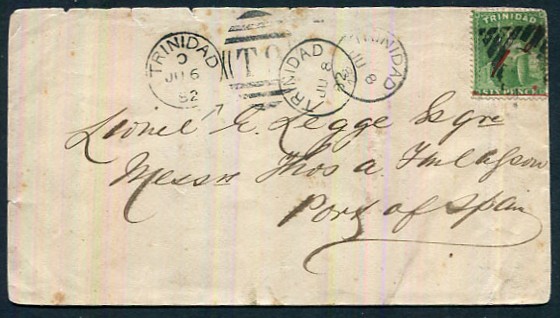 TRINIDAD
O
JU 6
82
T 9
TRINIDAD
JU 8
82
TRINIDAD
JU 8
TRINIDAD
SIX PENCE
Lionel E. Legge Esqre
Messrs Thos a. Finlayson
Port of Spain